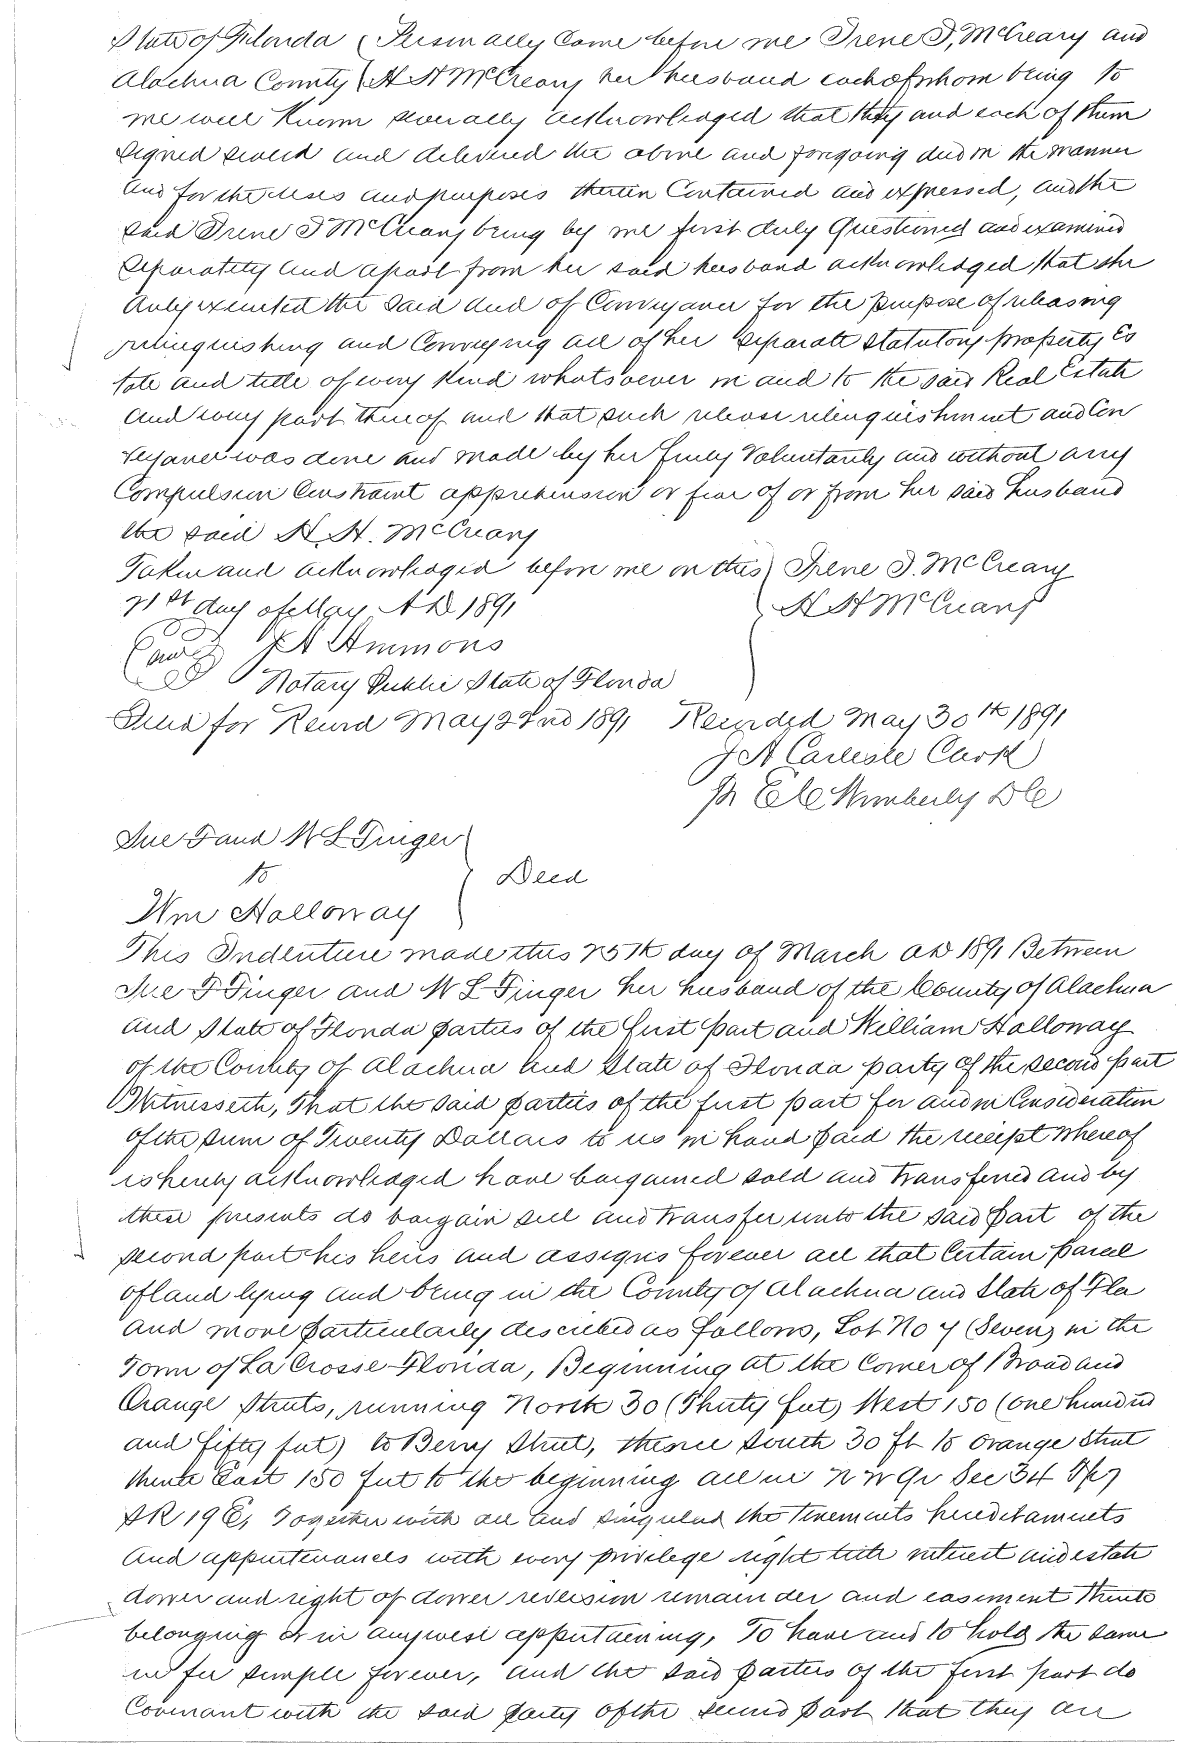 State of Florida ( Personally Come before me Irene I, McCreary and
Alachua County ( H H McCreary her husband each of whom being to
me well Known severally acknowledged that they and each of them
signed sealed and delivered the above and foregoing deed in the manner
and for the uses and purposes therein Contained and expressed, and the
said Irene I McCreary being by me first duly Questioned and examined
Separately and apart from her said husband acknowledged that she
only executed the said deed of Conveyance for the purpose of releasing
relinquishing and Conveying all of her separate statutory property Es
tate and title of every Kind whatsoever in and to the said Real Estate
and every part thereof and that such release relinquishment and Con
veyance was done and made by her freely Voluntarily and without any
Compulsion Constraint apprehension or fear of or from her said husband
the said H. H. McCreary
Taken and acknowledged before me on this ) Irene I. McCreary
21st day of May A D 1891 H H McCreary
J A Ammons
Notary Public State of Florida
Filed for Record May 22nd 1891 Recorded May 30th 1891
J A Carlisle Clerk
Pr E C Wimberly D C
Sue F and W L Finger
to Deed
Wm Holloway
This Indenture made this 25th day of March A D 1891 Between
Sue F Finger and W L Finger her husband of the County of Alachua
and State of Florida parties of the first part and William Holloway
of the County of Alachua and State of Florida party of the second part
Witnesseth, That the said parties of the first part for and in Consideration
of the sum of Twenty Dollars to us in hand paid the receipt whereof
is hereby acknowledged have bargained sold and transferred and by
these presents do bargain sell and transfer unto the said part of the
second part his heirs and assigns forever all that Certain parcel
of land lying and being in the County of Alachua and State of Fla
and more particularly described as follows, Lot No 7 (Seven) in the
Town of La Crosse Florida, Beginning at the Corner of Broad and
Orange Streets, running North 30 (Thirty feet) West 150 (one hundred
and fifty feet) to Berry Street, thence South 30 ft to Orange Street
thence East 150 feet to the beginning all in N W Qr Sec 34 Tp 7
S R 19 E, Together with all and singular the Tenements hereditaments
and appurtenances with every privilege right title interest and estate
dower and right of dower reversion remainder and easement thereto
belonging or in anywise appertaining, To have and to hold the same
in fee simple forever, and the said parties of the first part do
Covenant with the said party of the second part that they are